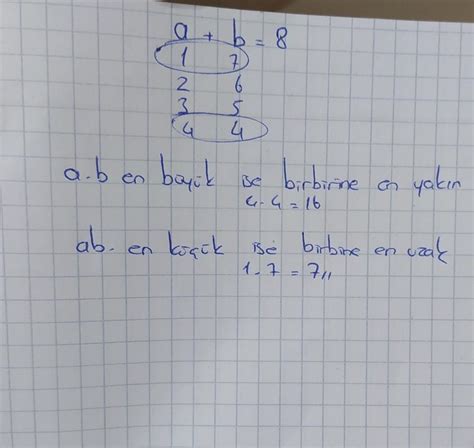 a + b = 8
1 7
2 6
3 5
4 4
a.b en büyük ise birbirine en yakın
4.4 = 16
ab. en küçük ise birbine en uzak
1.7 = 7,,